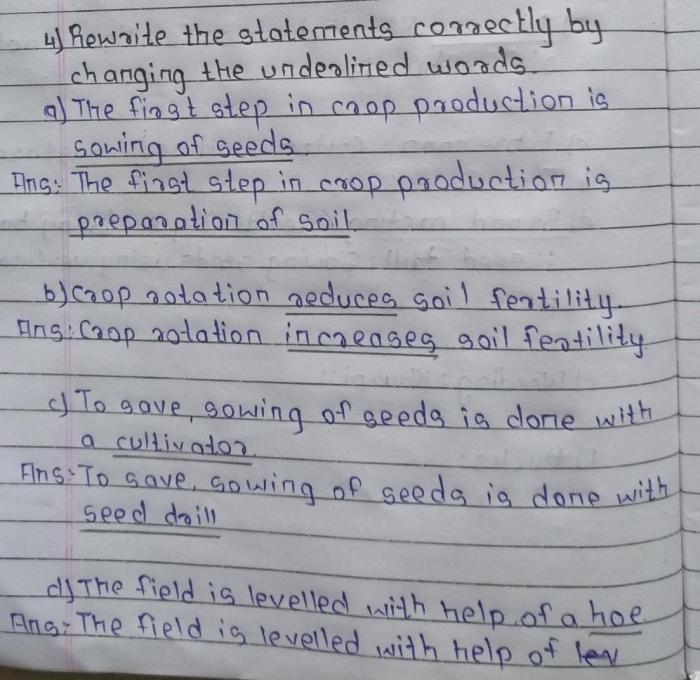 4) Rewrite the statements correctly by
changing the underlined words
a) The first step in crop production is
sowing of seeds.
Ans: The first step in crop production is
preparation of soil.
b) Crop rotation reduces soil fertility.
Ans: Crop rotation increases soil fertility
c) To save, sowing of seeds is done with
a cultivator.
Ans: To save, sowing of seeds is done with
seed drill
d) The field is levelled with help of a hoe
Ans: The field is levelled with help of lev